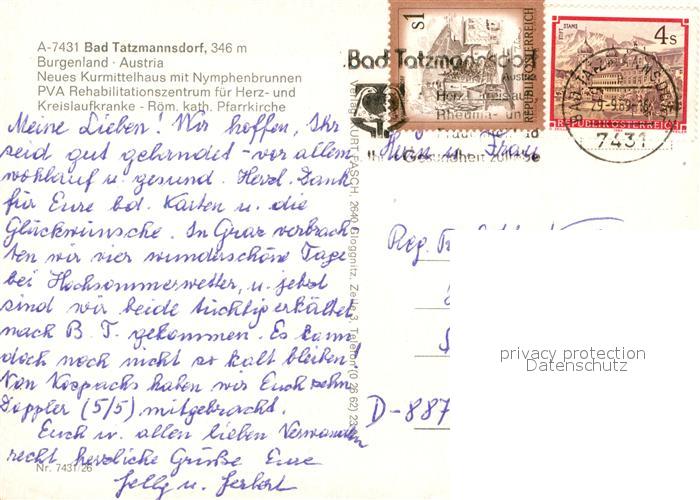 A-7431 Bad Tatzmannsdorf, 346 m
Burgenland · Austria
Neues Kurmittelhaus mit Nymphenbrunnen
PVA Rehabilitationszentrum für Herz- und
Kreislaufkranke - Röm. kath. Pfarrkirche
Meine Lieben! Wir hoffen, Ihr
seid gut gelandet - vor allem
wohlauf u. gesund. Herzl. Dank
für Eure bd. Karten u. die
Glückwünsche. In Graz verbrach-
ten wir vier wunderschöne Tage
bei Hochsommerwetter, u. jetzt
sind wir beide tüchtig erkältet
nach B. T. gekommen. Es kann
doch noch nicht so kalt bleiben!
Von haben wir Euch zehn
Doppler (5/5) mitgebracht.
Euch u. allen lieben Verwandten
recht herzliche Grüße Eure
u. Herbert
Nr. 7431/26
Verlag KURT FASCH, 2640 Gloggnitz, Zeile 3, Telefon (0 26 62) 23
s1
REPUBLIK ÖSTERREICH
STIFT STAMS
4s
REPUBLIK ÖSTERREICH
Bad Tatzmannsdorf
Austria
Herz Kreislauf
Rheuma - und
Gesundheit zuliebe
BAD TATZMANNSDORF
29.-9.89-18
7431
Herrn u. Frau
Reg.
D-887
privacy protection
Datenschutz